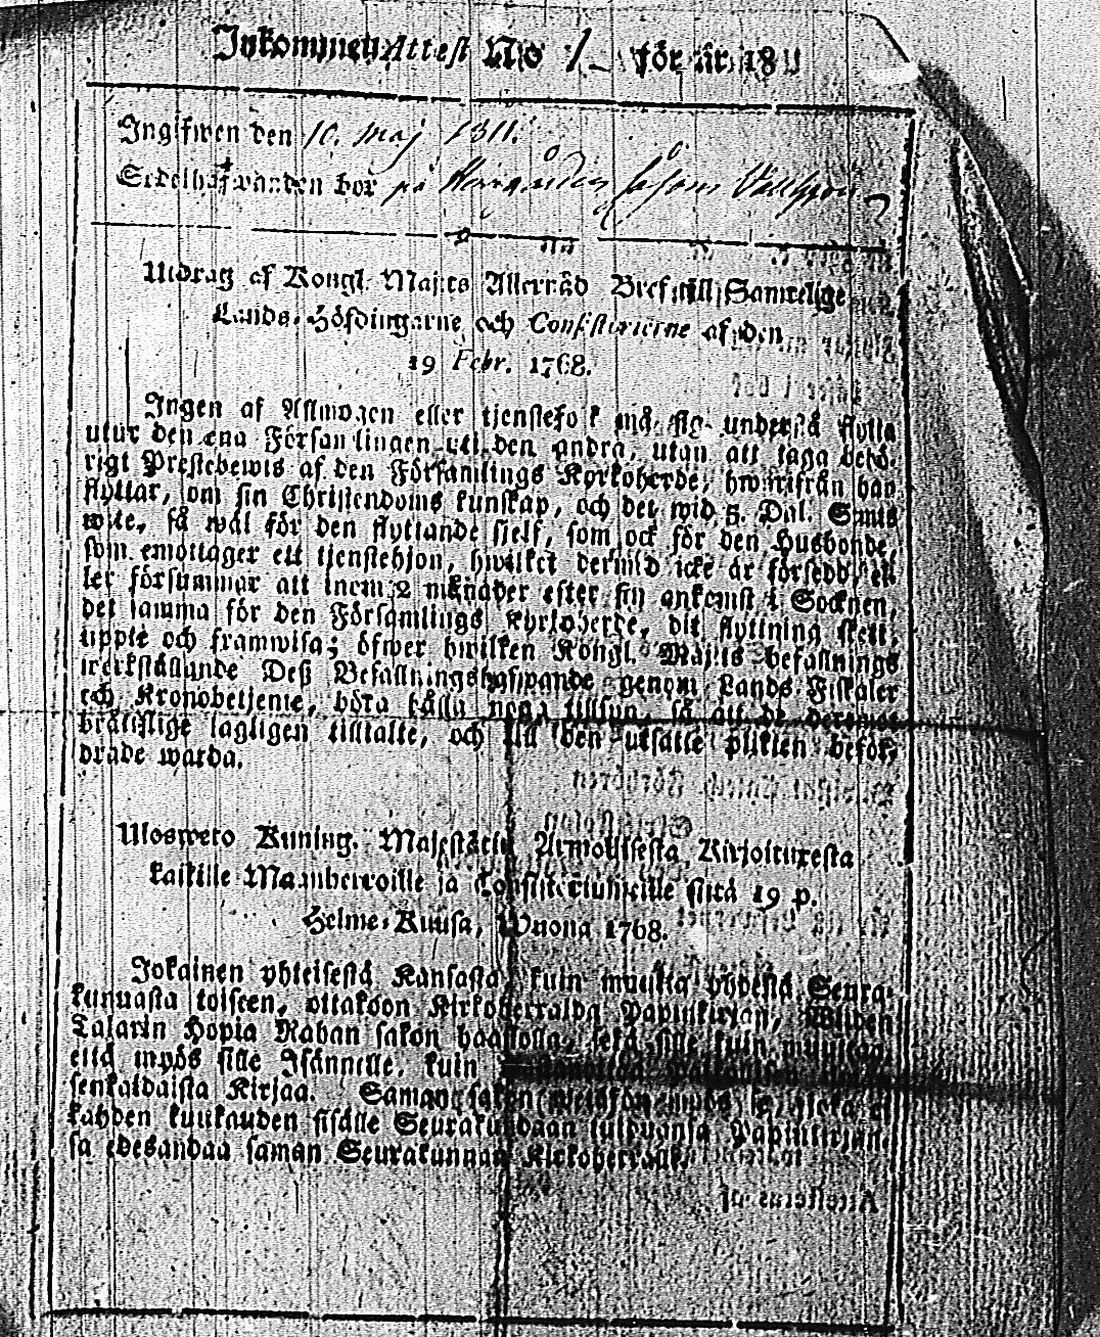 Inkommen Attest No 1 för år 1811
Ingifwen den 10. Maj 1811.
bor på Herrgården såsom
Utdrag af Kongl. Maj:ts Allernåd Bref till Samtelige
Lands-Höfdingarne och Consistorierne af den
19 Febr. 1768.
Ingen af Allmogen eller tjenstefolk må sig understå flytta
utur den ena Församlingen til den andra, utan att taga behö-
rigt Prestebewis af den Församlings Kyrkoherde, hwarifrån han
flyttar, om sin Christendoms kunskap, och det wid 5. Dal. S:mts
wite, så wäl för den flyttande sjelf, som ock för den Husbonde,
som emottager ett tjenstehjon, hwilket dermed icke är försedt, el-
ler försummar att inom 2 månader efter sin ankomst i Socknen,
det samma för den Församlings Kyrkoherde, dit flyttning skett,
uppte och framwisa; öfwer hwilken Kongl. Maj:ts befallnings
werkställande Deß Befallningshafwande genom Lands Fiskaler
och Kronobetjente, böra hålla noga tillsyn, så att de deremot
brottslige lagligen tilltalte, och till den utsatte plikten befor-
drade warda.
Ulosweto Kuning. Majestätin Armollisesta Kirjoituxesta
kaikille Maanherroille ja Consistoriumeille siitä 19 p.
Helme-Kuusa, Wuona 1768.
Jokainen yhteisestä Kansasta, kuin muutta yhdestä Seura-
kunnasta toiseen, ottakoon Kirkoherralda Papinkirjan, Wiiden
Talarin Hopia Rahan sakon haastolla, sekä sille kuin muuttaa,
että myös sille Isännille, kuin
senkaldaista Kirjaa. Saman sakon
kahden kuukauden sisälle Seurakundaan tulduansa Papinkirjan-
sa edesandaa saman Seurakunnan Kirkoherralle.